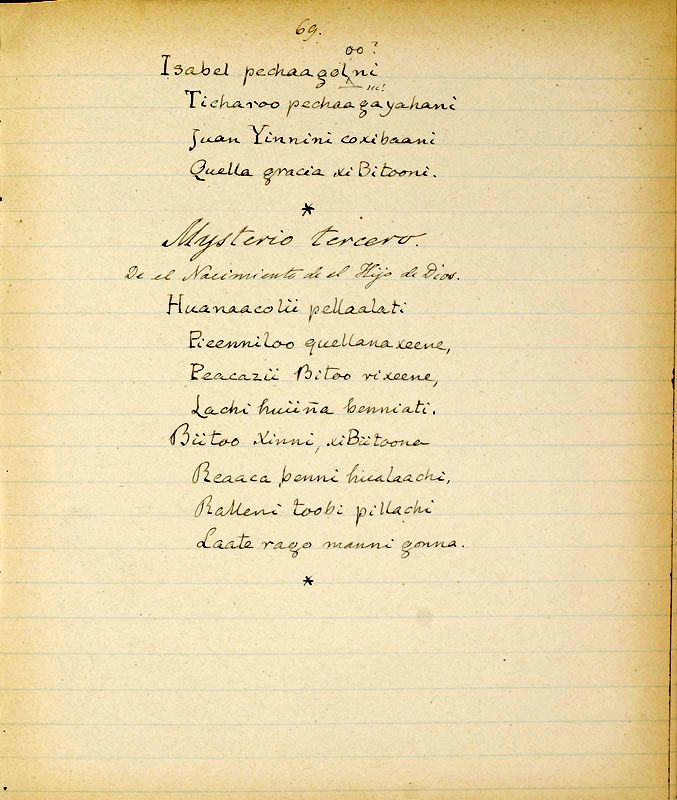 69.
oo?
Isabel pechaagol ni
Ticharoo pechaagayahani
Juan Yinnini coxibaani
Quella gracia xiBitooni.
*
Mysterio tercero.
De el Nacimiento de el Hijo de Dios.
Huanaacolii pellaalati
Pieenniloo quellanaxeene,
Peacazii Bitoo rixeene,
Lachi huiiña benniati.
Biitoo xinni, xiBiitoone
Reaaca benni hualaachi,
Ralleni toobi pillachi
Laate rago manni gonna.
*